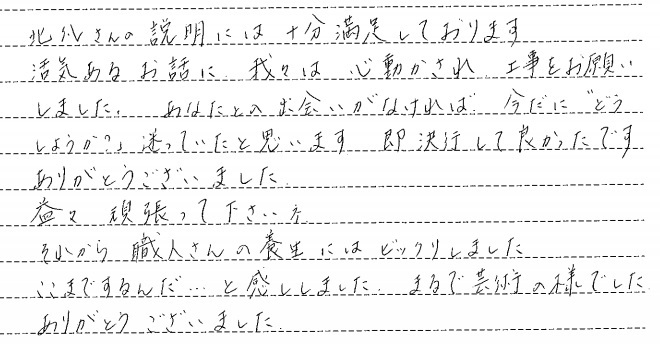 北礼さんの説明には十分満足しております
活気あるお話に、我々は心動かされ、工事をお願い
しました。あなたとの出会いがなければ、今だに"どう
しようか?」迷っていたと思います 即決行して良かったです
ありがとうございました。
益々頑張って下さい
それから職人さんの養生にはビックリしました
ここまでするんだ…と感じしました。まるで芸術の様でした
ありがとうございました。